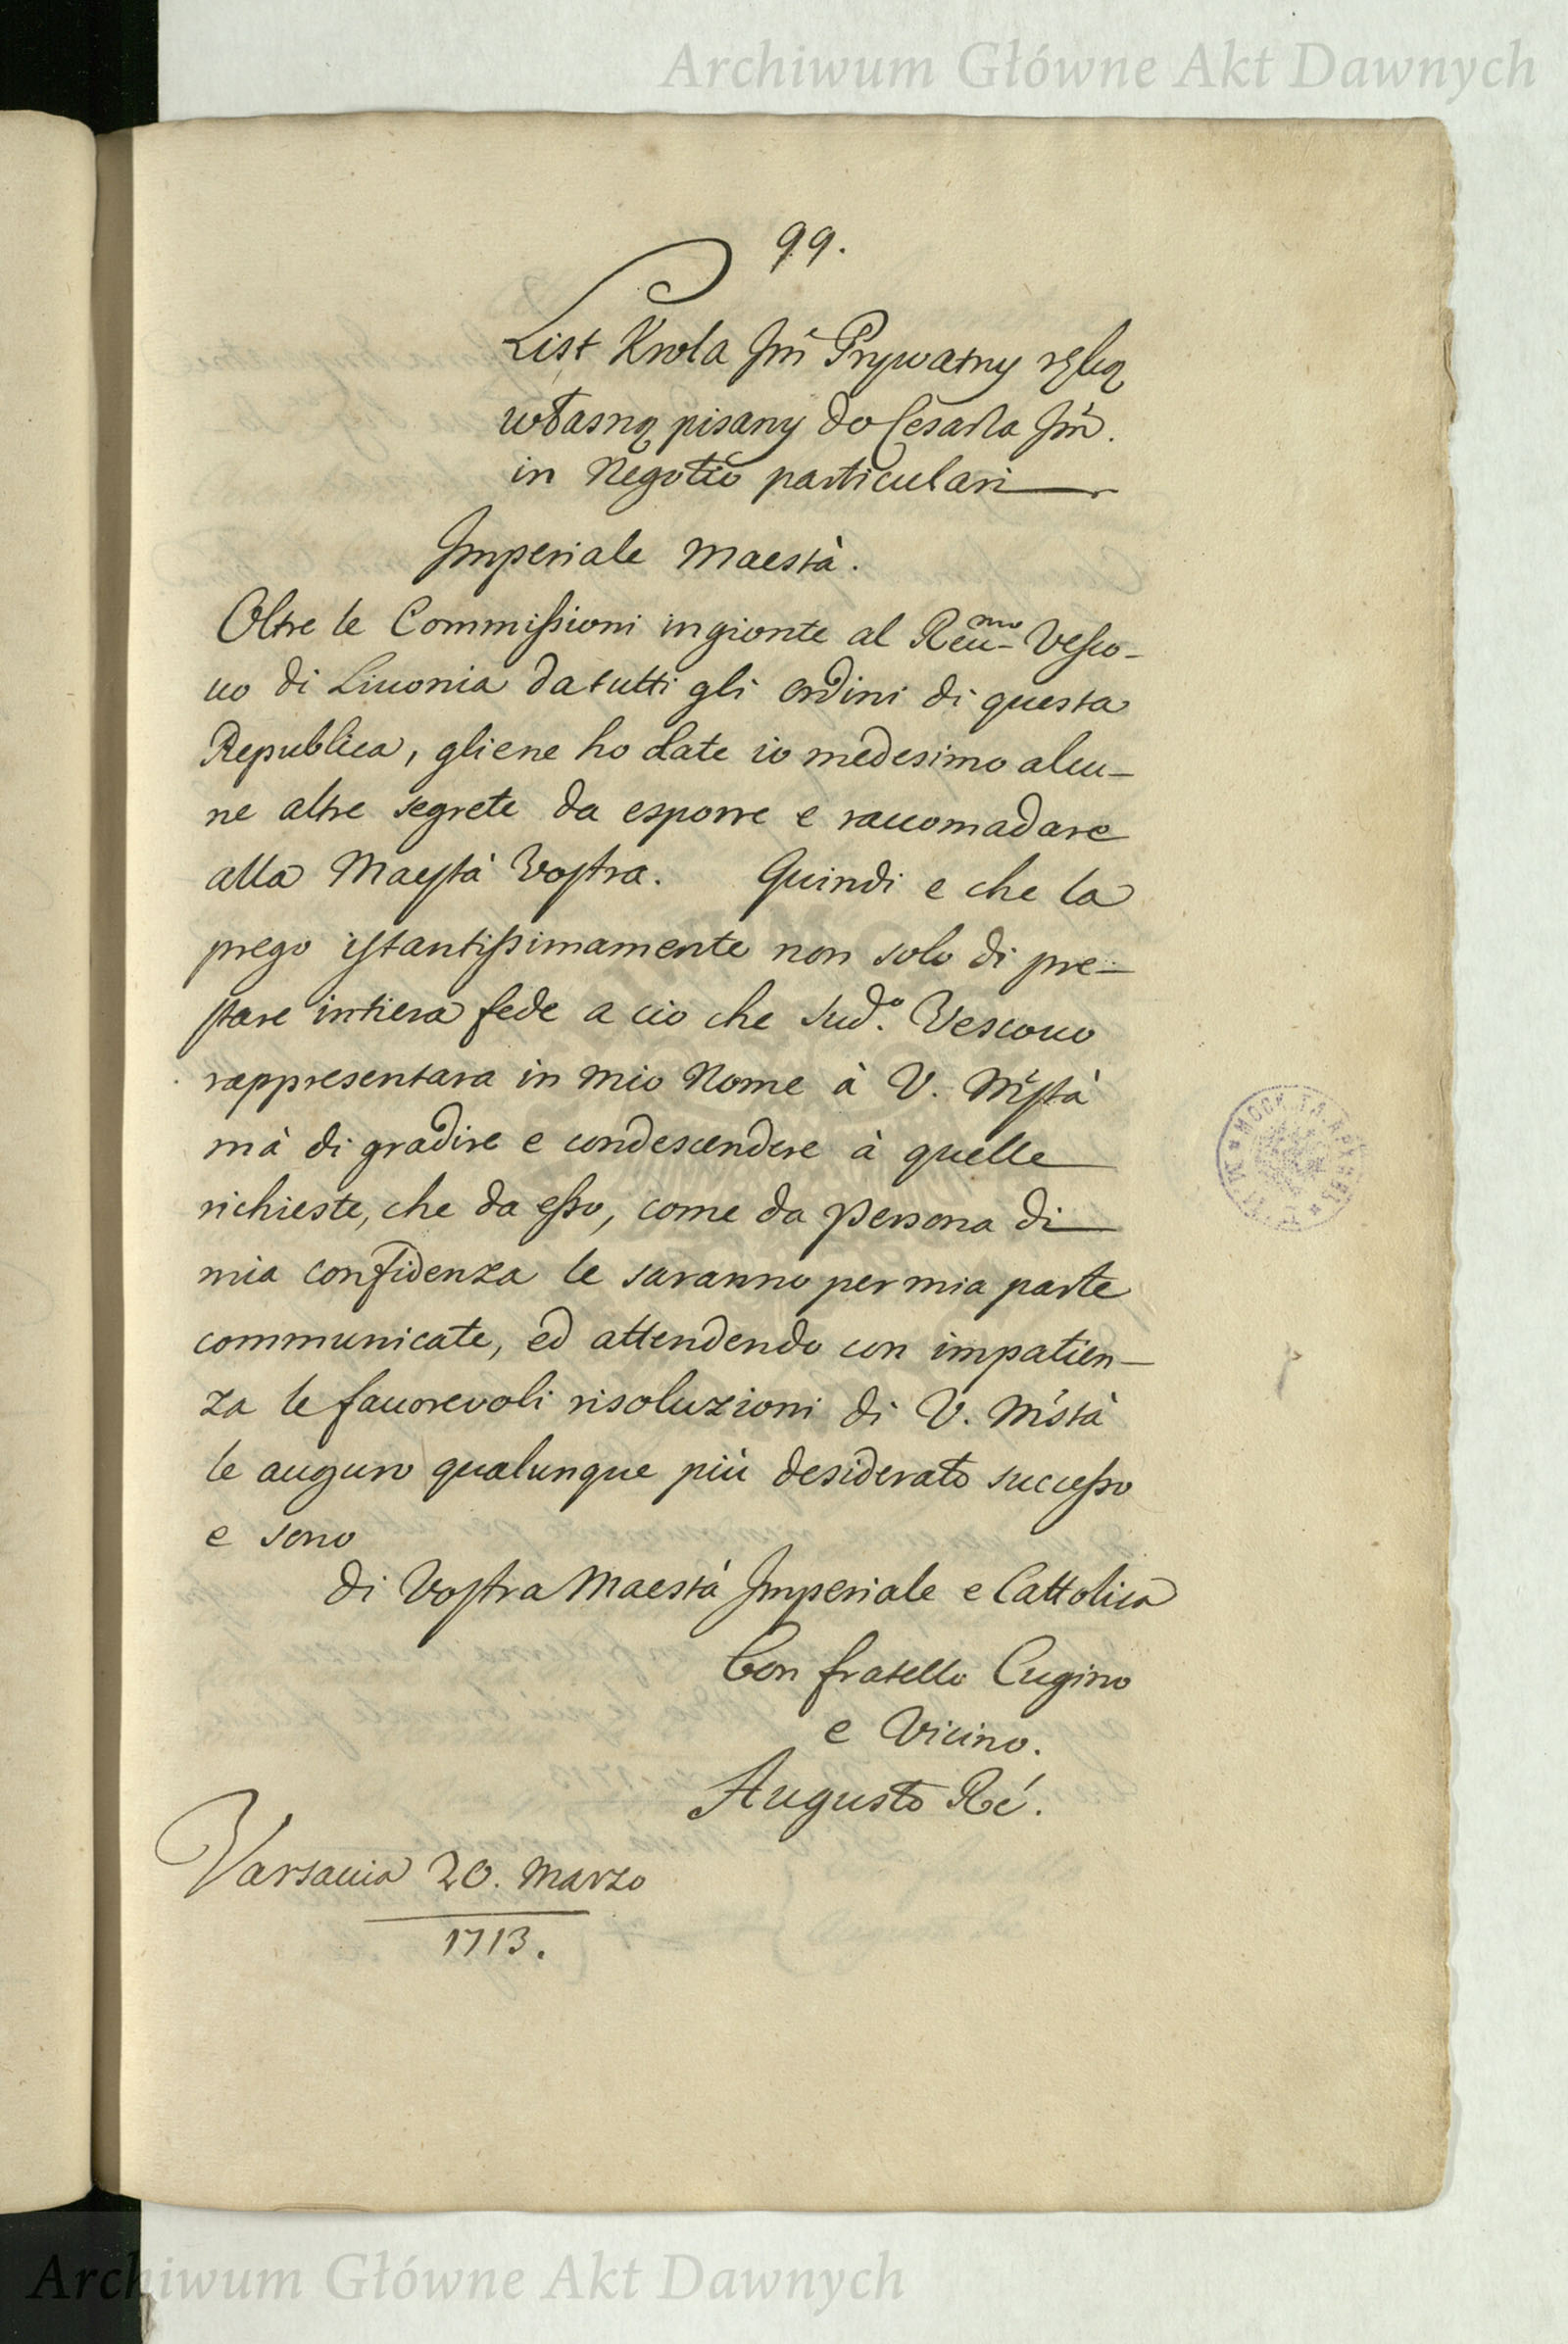 Archiwum Główne Akt Dawnych
99.
List Krola Jm̃ Prywatny ręką
własną pisany do Cesarza Jm̃.
in Negotio particulari
Imperiale Maestà.
Oltre le Commissioni ingionte al Reu.mo Vesco-
uo di Liuonia da tutti gli ordini di questa
Republica, gliene ho date io medesimo alcu-
ne altre segrete da esporre e raccomadare
alla Maestà Vostra. Quindi e che la
prego istantissimamente non solo di pre-
stare intiera fede a cio che sud.o Vescouo
rappresentara in mio Nome à V. M̃stà
mà di gradire e condescendere à quelle
richieste, che da esso, come da persona di
mia confidenza le saranno per mia parte
communicate, ed attendendo con impatien-
za le fauorevoli risoluzioni di V. M̃stà
le auguro qualunque più desiderato successo
e sono
di Vostra Maestà Imperiale e Cattolica
Bon fratello Cugino
e Vicino.
Augusto Ré.
Varsauia 20. Marzo
1713.
Archiwum Główne Akt Dawnych